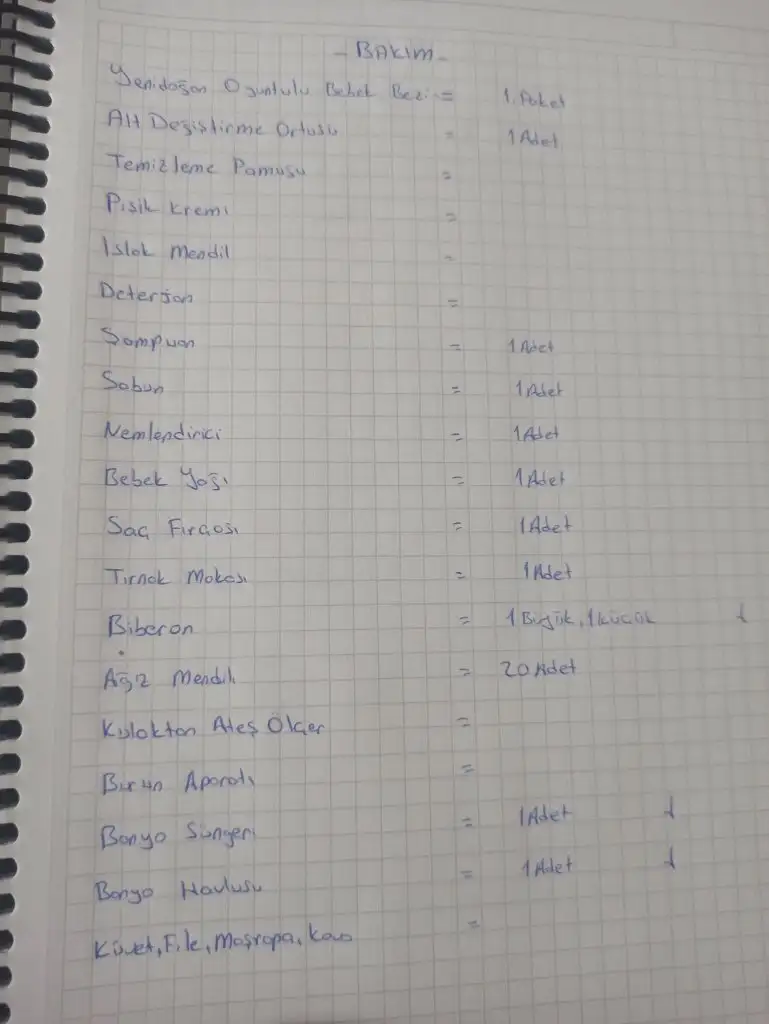 - BAKIM -
Yenidoğan Oyuntulu Bebek Bezi = 1. Paket
Alt Değiştirme Örtüsü = 1 Adet
Temizleme Pamuğu =
Pişik Kremi =
Islak Mendil =
Deterjan =
Şampuan = 1 Adet
Sabun = 1 Adet
Nemlendirici = 1 Adet
Bebek Yağı = 1 Adet
Saç Fırçası = 1 Adet
Tırnak Makası = 1 Adet
Biberon = 1 Büyük, 1 küçük
Ağız Mendili = 20 Adet
Kulaktan Ateş Ölçer =
Burun Aparatı =
Banyo Süngeri = 1 Adet
Banyo Havlusu = 1 Adet
Küvet, File, Maşrapa, Kova =